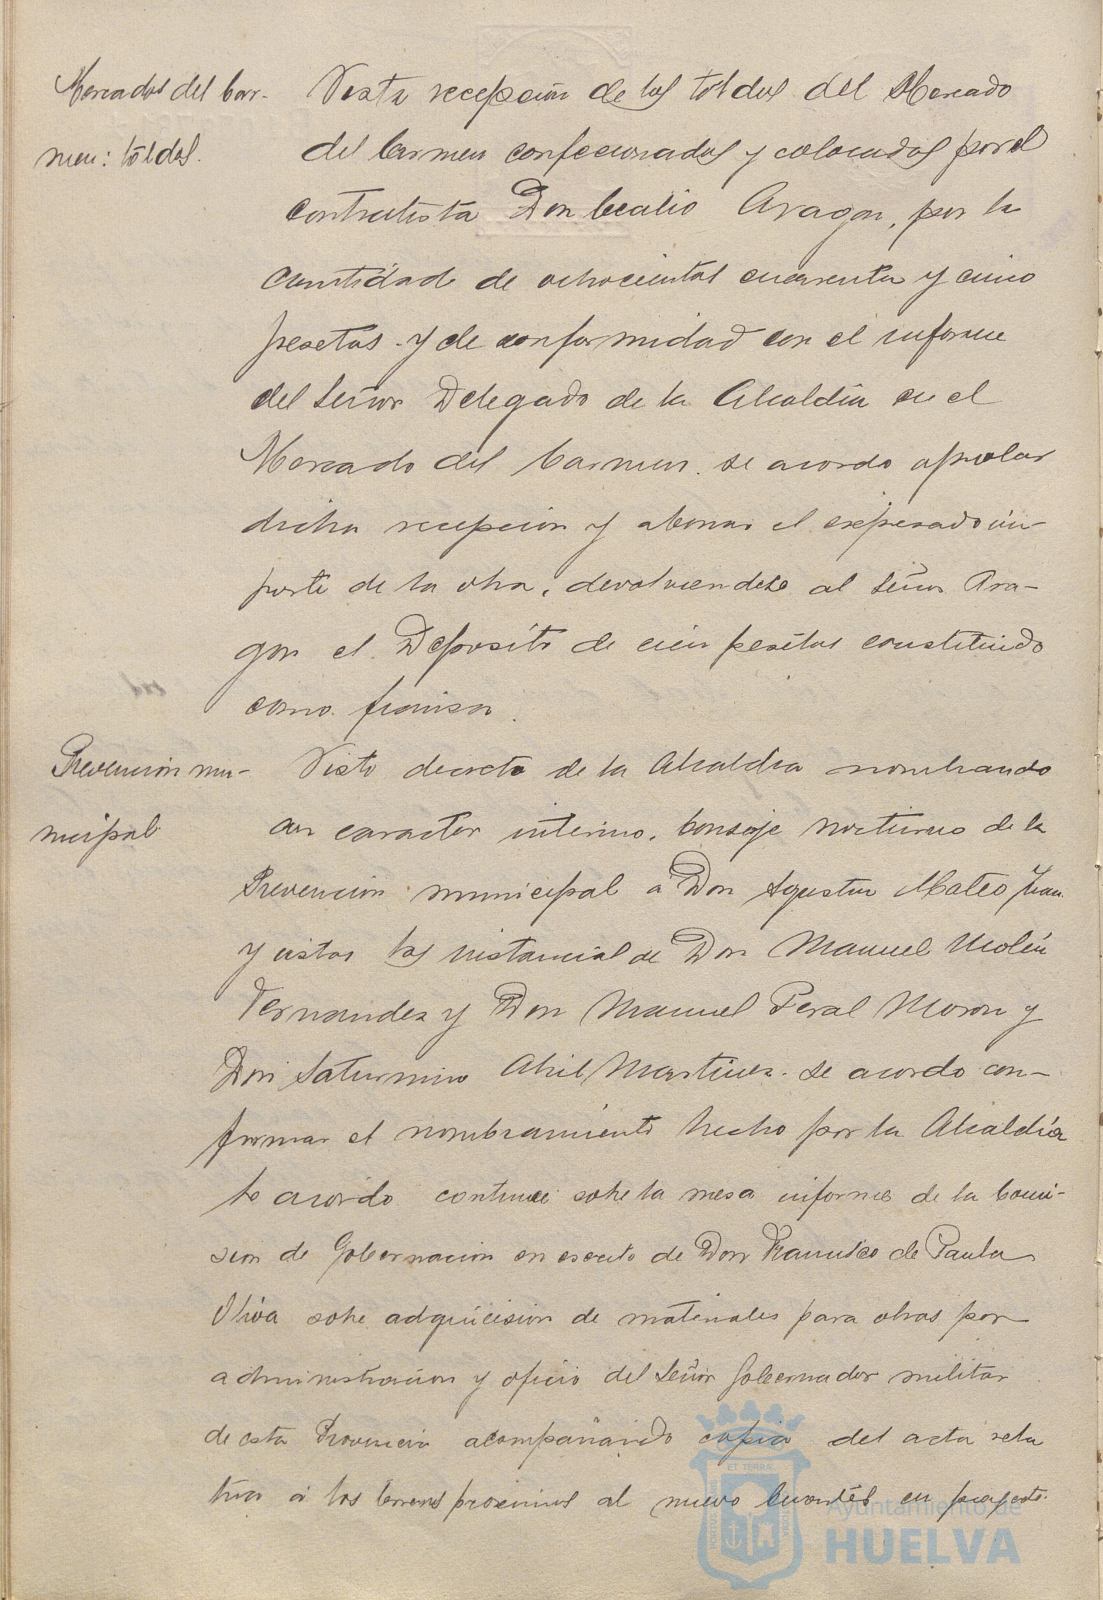 Mercados del Car-
men: toldos.
Vista recepción de los toldos del Mercado
del Carmen confeccionados y colocados por el
contratista Don Cecilio Aragon, por la
cantidad de ochocientas cuarenta y cinco
pesetas y de conformidad con el informe
del Señor Delegado de la Alcaldía en el
Mercado del Carmen. se acordo aprobar
dicha recepcion y abonar el expresado im-
porte de la obra, devolviendose al Señor Ara-
gon el Deposito de cien pesetas constituido
como fianza.
Prevención mu-
nicipal
Visto decreto de la Alcaldia nombrando
con caracter interino, Conserje nocturno de la
Prevención municipal a Don Agustin Mateo Juan
y vistas las instancias de Don Manuel
Fernandez y Don Manuel Peral Moron y
Don Saturnino Abil Martinez. se acordo con-
firmar el nombramiento hecho por la Alcaldía
Se acordo continue sobre la mesa informes de la Comi-
sion de Gobernacion en escrito de Don Francisco de Paula
Oliva sobre adquicision de materiales para obras por
administracion y oficio del Señor Gobernador militar
de esta Provincia acompañando copia del acta rela
tiva a los terrenos proximos al nuevo Cuartel en proyecto.
Ayuntamiento de
HUELVA